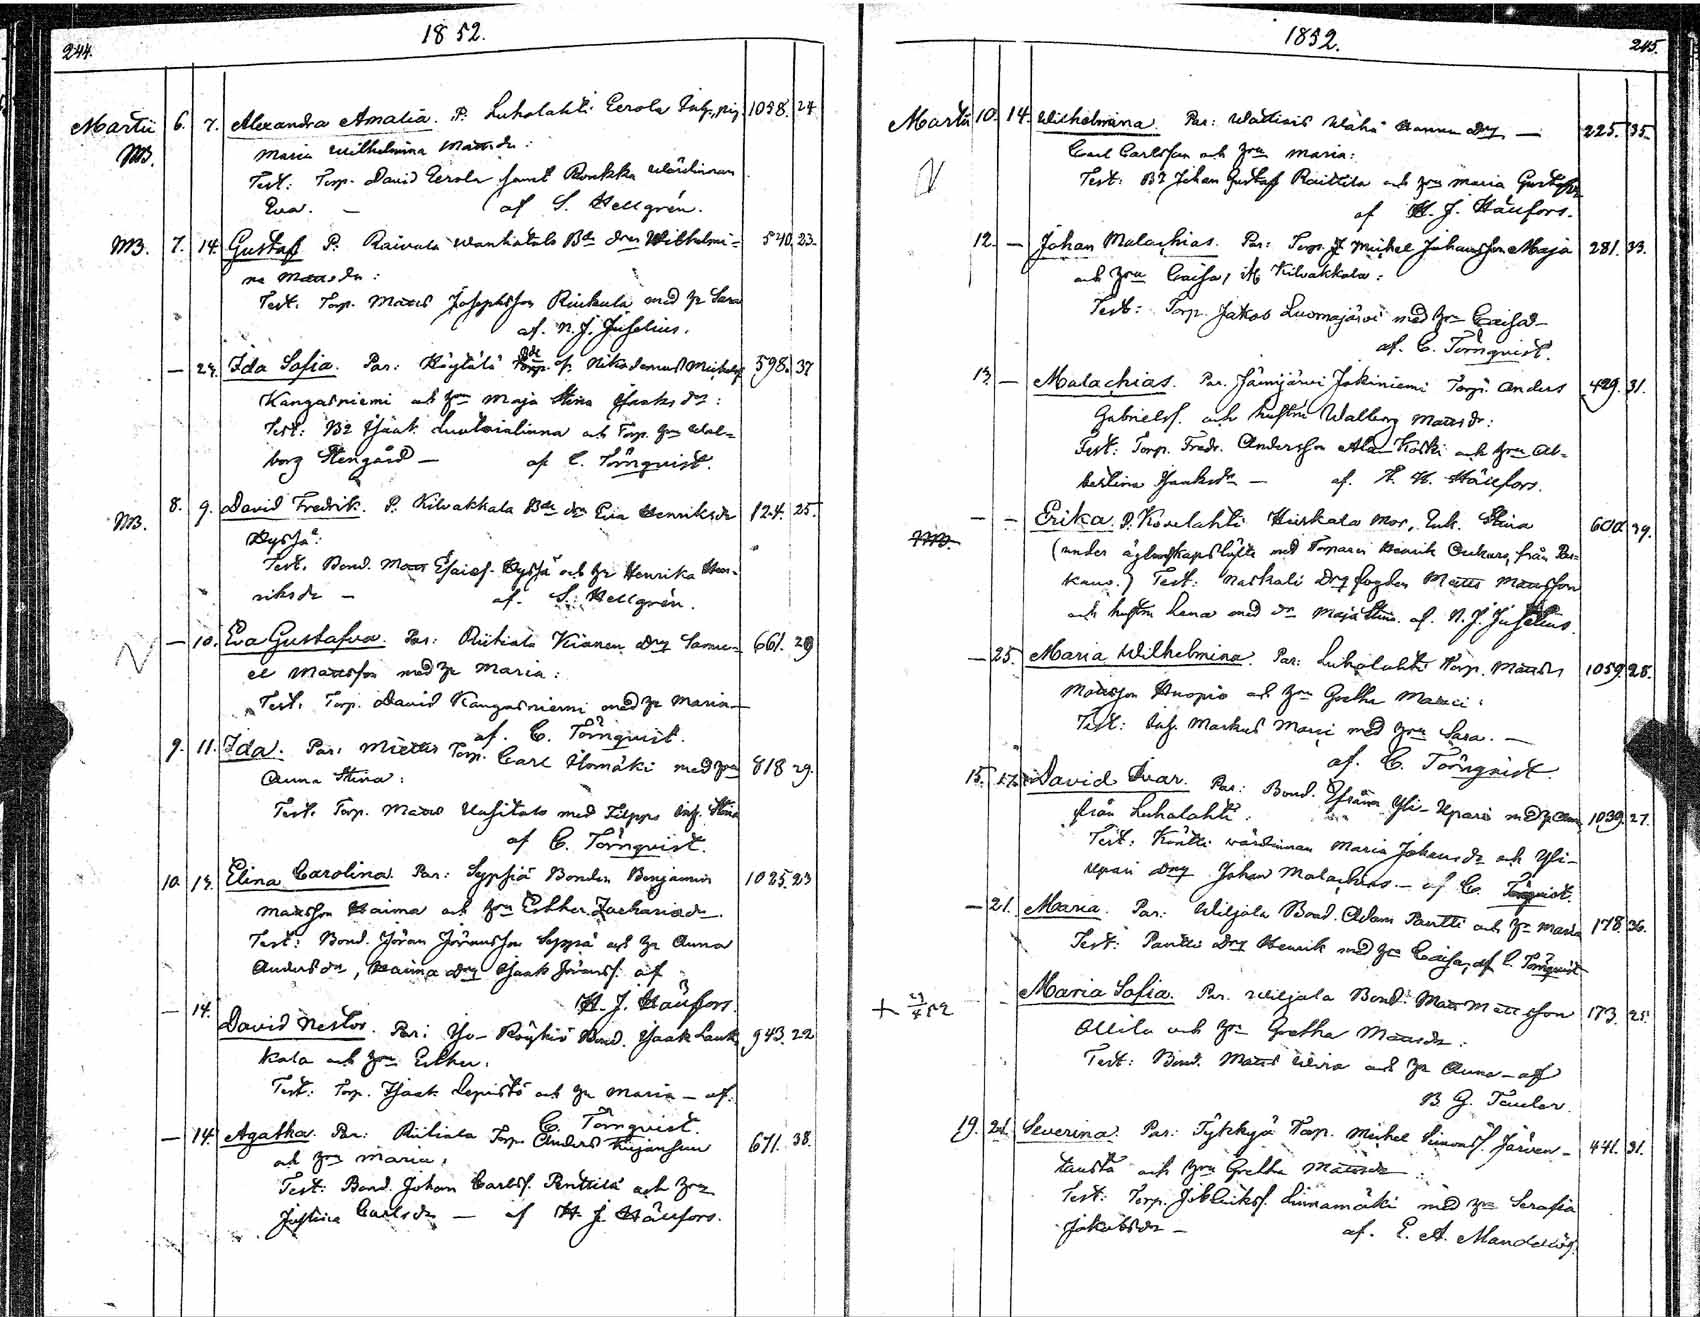 244.
1852.
Martii 6. 7. Alexandra Amalia. P. Luhalahti Eerola Inh. pig. 1058. 24
MB. Maria Wilhelmina Mattsdr:
Test: Torp. David Eerola samt Ronkka wärdinnan
Eva. — af S. Hellgrén.
MB. 7. 14. Gustaf P. Raivala Wanhatalo Bde drs Wilhelmi= 540. 23.
na Mattsdr:
Test: Torp. Matts Josephsson Rinkula med h. Sara
af. N. J. Juselius.
— 24. Ida Sofia. Par: Höytölä Torp. Nikodemus Michelss. 598. 37
Kangasniemi och hru Maja Stina Isaksdr:
Test: Bd Isaak Luotoialinna och Torp. hru Wal=
borg Stengård — af C. Törnqvist.
MB. 8. 9. David Fredrik. P. Kilvakkala Bde dr Eva Henriksdr 124. 25.
Kyssä:
Test. Bond. Matts Esaiss. Kyssä och h. Henrika Hen=
riksdr — af. S. Hellgrén.
— 10. Eva Gustafva. Par: Riitiala Keianen drg Samu= 661. 29
el Mattsson med h. Maria:
Test. Torp. David Kangasniemi med h. Maria—
af. C. Törnqvist.
9. 11. Ida. Par: Miettis Torp. Carl Ilomäki med hru 818 29.
Anna Stina:
Test. Torp. Matts Uusitalo med Filpps Inh. Stina
af C. Törnqvist.
10. 13. Elina Carolina. Par: Sypsiä Bonden Benjamin 1025. 23
Mattsson Haima och hru Esther Zachariedr.
Test: Bond. Jöran Jöransson Seppä och h. Anna
Andersdr, Haima drg Isaak Jöranss. af
H. J. Häufors.
— 14. David Nestor. Par: Yo-Röyhiö Bond. Isaak Lauk 943. 22
kala och hru Esther.
Test: Torp. Isaak Lepistö och h. Maria — af.
C. Törnqvist.
— 14. Agatha. Par: Riitiala Torp. Anders Kujansuu 671. 38.
och hru Maria.
Test: Bond. Johan Carlss. Penttilä och hru
Justina Carlsdr — af H. J. Häufors.
1852.
245.
Martii 10. 14. Wilhelmina. Par: Wähä drg — 225. 35.
Carl Carlsson och hru Maria:
Test: Bd Johan Gustaf Raittila och hru Maria
af H. J. Häufors.
12. — Johan Malachias. Par: Torp. Michel Johansson Maja 281. 33.
och hru Caisa, Kilvakkala:
Test: Torp. Jakob Luomajärvi med hru Caisa—
af. C. Törnqvist.
13. — Malachias. Par. Jämijärvi Jokiniemi Torp. Anders 429. 31.
Gabrielss. och hustru Walborg Mattsdr:
Test: Torp. Fredr. Andersson Ala-Koski och hru Al=
bertina Isaksdr — af. H. J. Häufors.
MB. — — Erika. P. Kovelahti Hiirkala Mor, Enk. Stina 600 39.
(under äktenskapslöfte med Torparen Henrik från Par=
kano.) Test: Naskali Drg fogden Matts Mattsson
och hustru Lena med dr Maja Stina. af. N. J. Juselius.
— 25. Maria Wilhelmina. Par: Luhalahti Torp. Matts 1059. 25.
Mattsson Knopio och hru Gretha Maria:
Test: Inh. Markus Marsi med hru Sara. —
af. C. Törnqvist.
15. 17. David Ivar. Par: Bond. Efraim Yli-Upari med h. Anna 1039. 27.
från Luhalahti.
Test: Köntti wärdinnan Maria Johansdr och Yli-
Upari drg Johan Malachias. — af C. Törnqvist.
— 21. Maria. Par: Wiljala Bond. Adam Pantti och h. Maria 178. 36.
Test: Pantti Drg Henrik med hru Caisa, af C. Törnqvist
+ 23/4 52 Maria Sofia. Par. Wiljala Bond. Matts Mattsson 173. 25.
Ollila och hru Gretha Mattsdr:
Test: Bond. Matts och h. Anna — af
B. G. Taucler.
19. 21. Severina. Par: Tykkyä Torp. Michel Simonss. Järven= 441. 31.
tausta och hru Gretha Mattsdr:
Test: Torp. Linnamäki med hru Serafia
Jakobsdr — af. E. A. Mandellöf.